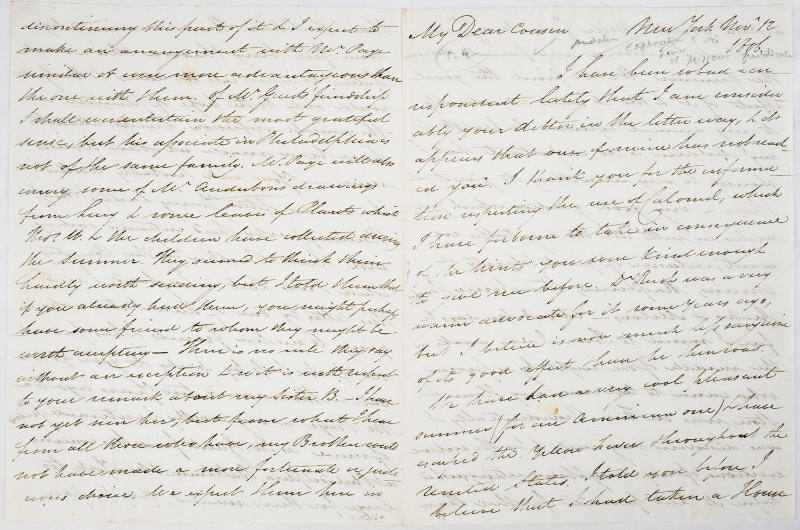 discontinuing this part of it & I expect to
make an arrangement with Mr. Page
similar & even more advantageous than
the one with them. Of Mr. Gurd's friendship
I shall ever entertain the most grateful
sense, but his associate in Philadelphia is
not of the same family. Mr. Page will also
convey some of Mr. Audubon's drawings
from Lucy & some leaves of Plants which
Thos. W. & the children have collected during
the summer. They seemed to think them
hardly worth sending, but I told them that
if you already had them, you might perhaps
have some friend to whom they might be
worth accepting — There is no rule they say
without an exception & so it is with respect
to your remark about my Sister B. — I have
not yet seen her, but from what I hear
from all those who have, my Brother could
not have made a more fortunate or judi-
cious choice. We expect them here in
My Dear Cousin New York Nov. 12
Audubon
Explorations
of Missouri
I have been so bad a cor-
respondent lately that I am consider
ably your debtor in the letter way, & it
appears that one of mine has not reach
ed you. I thank you for the informa
tion respecting the use of Calomel, which
I have forborne to take in consequence
of the hints you were kind enough
to give me before. Dr. Rush was a very
warm advocate for it some years ago,
but I believe is now much less sanguine
of its good effect than he then was.
We have had a very cool pleasant
summer (for an American one) & have
escaped the Yellow Fever throughout the
United States. I told you before I
believe that I had taken a House